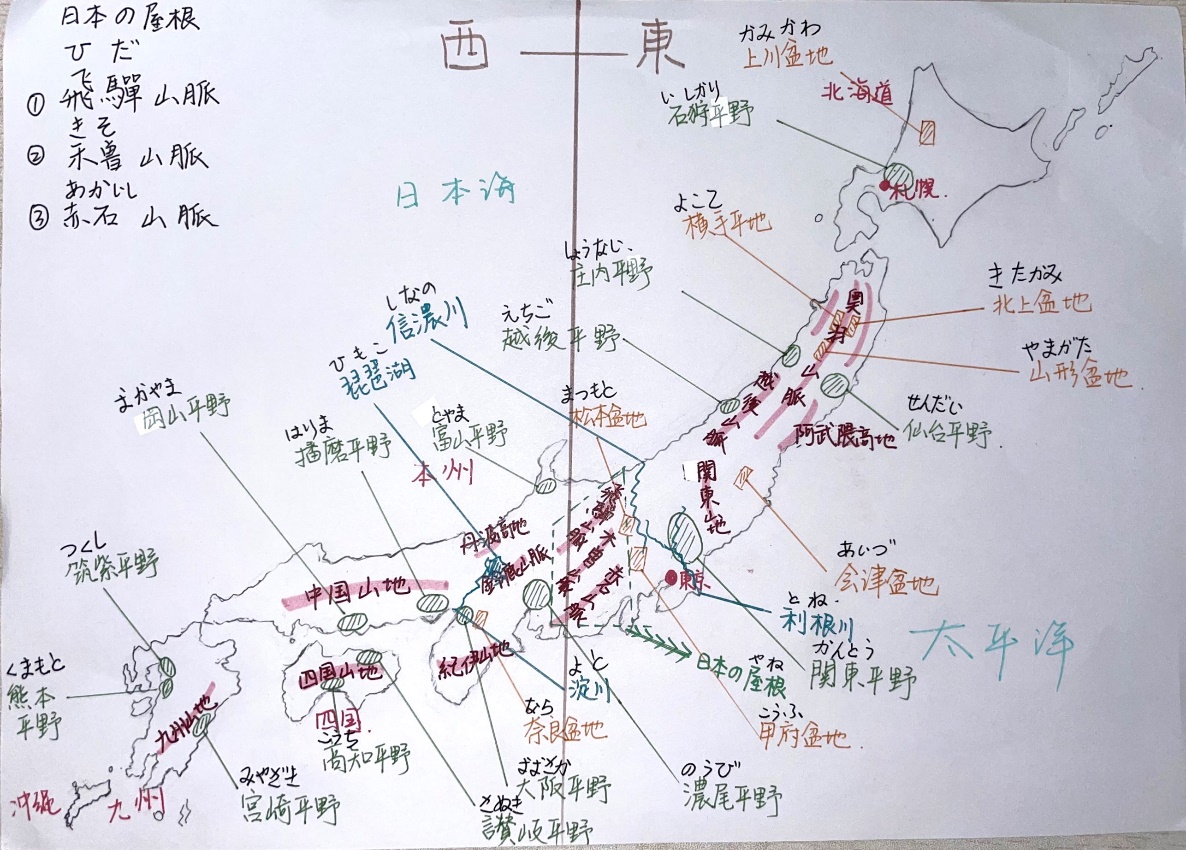 日本の屋根
ひだ
① 飛驒山脈
きそ
② 木曽山脈
あかいし
③ 赤石山脈
西 東
かみかわ
上川盆地
北海道
いしかり
石狩平野
札幌.
日本海
よこて
横手平地
しょうない.
庄内平野
きたかみ
北上盆地
やまがた
山形盆地.
奥羽山脈
しなの
信濃川
えちご
越後平野
越後山脈
せんだい
仙台平野.
阿武隈高地
びわこ
琵琶湖
まつもと
松本盆地
関東山地
おかやま
岡山平野
はりま
播磨平野
とやま
富山平野
本州
飛驒山脈
木曽山脈
丹波高地
鈴鹿山脈
つくし
筑紫平野
中国山地
東京
あいづ
会津盆地
とね.
利根川
太平洋
かんとう
関東平野
やね
日本の屋根
くまもと
熊本
平野
四国山地
紀伊山地
よど
淀川
四国
こうち
高知平野
なら
奈良盆地
こうふ
甲府盆地.
九州山地
みやざき
宮崎平野
おおさか
大阪平野
のうび
濃尾平野
さぬき
讃岐平野
沖縄
九州